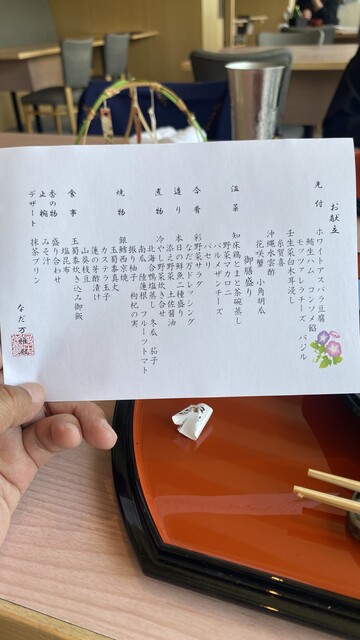 お献立
先付
ホワイトアスパラ豆腐
鮪生ハム コンソメ餡
モッツァレラチーズ バジル
壬生菜白木耳浸し
糸賀喜
沖縄水雲酢
花咲蟹 小角胡瓜
御膳盛り
温菜
知床鶏とまと茶碗蒸し
野菜マカロニ
パルメザンチーズ
パセリ
合肴
彩野菜サラダ
なだ万ドレッシング
造り
本日の鮮魚二種盛り
添え野菜 土佐醤油
煮物
冷やし野菜炊き合せ
北海合鴨塩蒸し 冬瓜 茄子
南瓜 陸蓮根 フルーツトマト
振り柚子 枸杞の実
焼物
銀鱈西京焼
玉蜀黍真丈
カステラ玉子
蓮の芽酢漬け
山葵枝豆
食事
玉蜀黍炊き込み御飯
塩昆布
香の物
盛り合わせ
止椀
みそ汁
デザート
抹茶プリン
なだ万